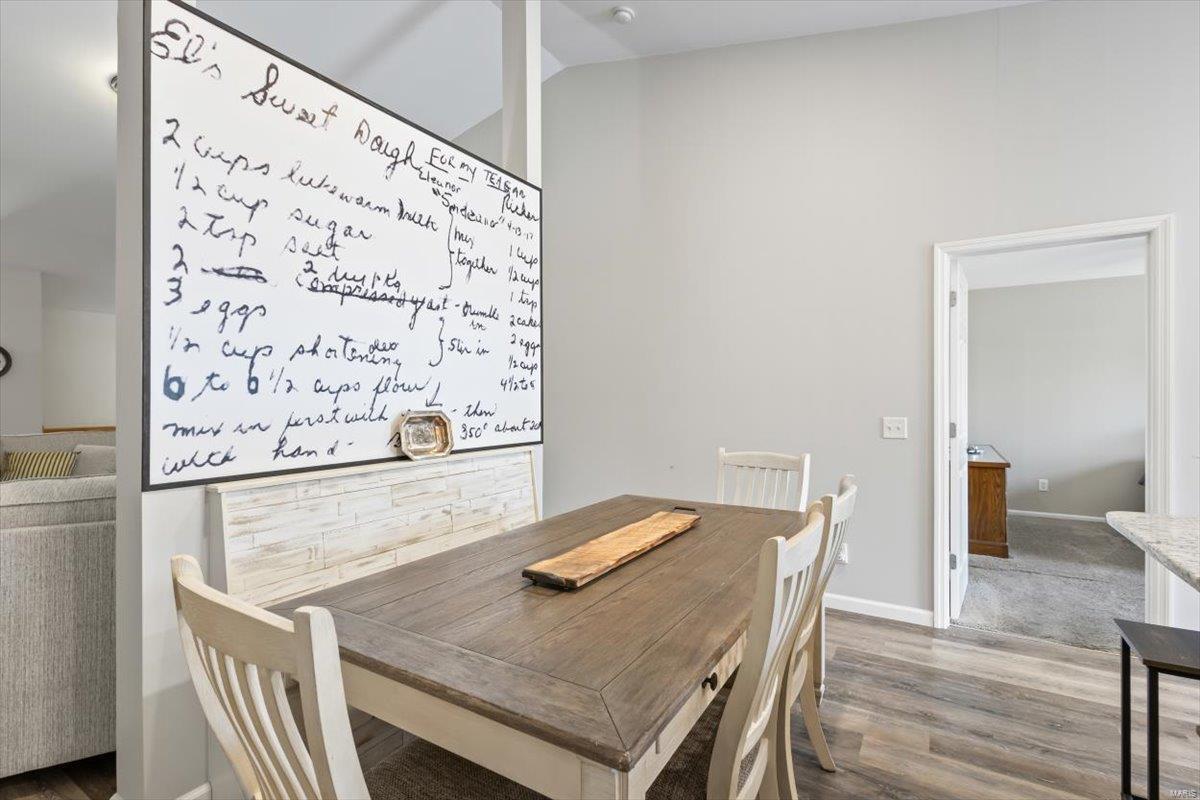 El's Sweet Dough FOR MY
Eleanor Richer
4-13-17
2 cups lukewarm milk mix 1 cup
1/2 cup sugar together 1/2 cup
2 tsp salt 1 tsp
2 2 dry pkg
compressed yeast - crumble in 2 cakes
3 eggs 2 eggs
1/2 cup shortening Stir in 1/2 cup
6 to 6 1/2 cups flour 4 1/2 to
mix in first with - then
with hand - 350° about
MARIS